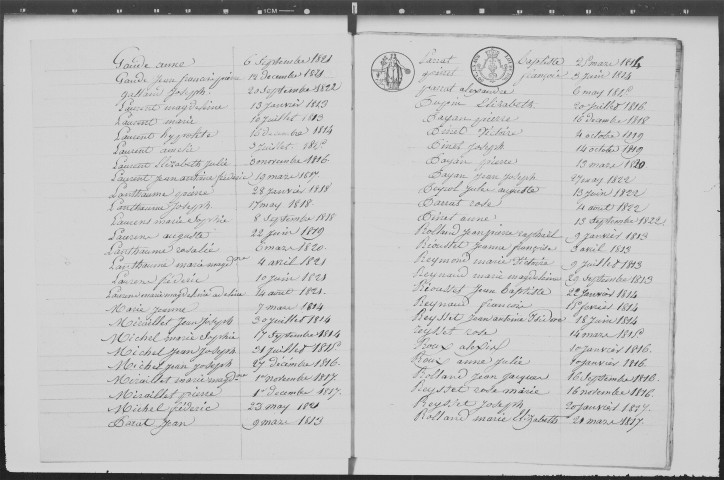 Gaude anne 6 Septembre 1821
Gaude jean françois pierre 14 decembre 1821
gallinis Joseph 20 Septembre 1822
Laurent magdeleine 13 janvier 1813
Laurent marie 10 juillet 1813
Laurent hypolite 15 decembre 1814
Laurent amelie 3 juillet 1815
Laurent Elizabeth julie 3 novembre 1816
Laurent jean antoine frederic 19 mars 1817
Lanthaume pierre 28 janvier 1818
Lanthaume Joseph 17 may 1818
Laurens marie Sophie 8 Septembre 1818
Laurens auguste 22 juin 1819
Lanthaume rosalie 6 mars 1820
Lanthaume marie magdne 4 avril 1821
Laurens fréderic 10 juin 1821
Laurens marie magdeleine adeline 14 aout 1821
Marie jeanne 7 mars 1814
Miraillet jean joseph 30 juillet 1814
Michel marie Sophie 17 Septembre 1814
Michel jean joseph 31 juillet 1815
Michel jean joseph 27 décembre 1816
Miraillet marie magdne 1er novembre 1817
Miraillet pierre 1er decembre 1817
Michel fréderic 23 may 1821
jean 9 mars 1813
1CM
baptiste 25 mars 1814
françois 3 juin 1814
alexandre 6 may 1815
Elizabeth 20 juillet 1816
pierre 16 decembre 1818
4 octobre 1819
Joseph 14 octobre 1819
pierre 13 mars 1820
jean joseph 27 may 1822
julie auguste 13 juin 1822
rose 4 aout 1822
anne 15 Septembre 1822
Rolland jean pierre raphaël 9 janvier 1813
jeanne françoise 3 avril 1813
Reymond marie Victoire 9 juillet 1813
Reynaud marie magdeleine 20 Septembre 1813
jean baptiste 22 janvier 1814
Reynaud francois 15 fevrier 1814
Reysset jean antoine Isidore 18 juin 1814
reysset rose 14 mars 1815
Roux alexis 10 janvier 1816
Roux anne julie 10 janvier 1816
Rolland jean jacques 16 Septembre 1816
Reysset rose marie 16 novembre 1816
Reysset joseph 20 janvier 1817
Rolland marie Elizabeth 21 mars 1817